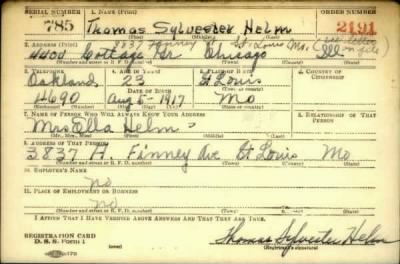 SERIAL NUMBER 1. NAME (Print) ORDER NUMBER
785 Thomas Sylvester Helm 2191
(First) (Middle) (Last)
3837 Finney St Louis Mo.
2. ADDRESS (Print)
4401 Cottage Gr Chicago Ill
(Number and street or R. F. D. number) (Town) (County) (State)
3. TELEPHONE 4. AGE IN YEARS 5. PLACE OF BIRTH 6. COUNTRY OF CITIZENSHIP
Oakland 23 St Louis
DATE OF BIRTH (Town or county)
4690 Aug 1917 Mo
(Exchange) (Number) (Mo.) (Day) (Yr.) (State or country)
7. NAME OF PERSON WHO WILL ALWAYS KNOW YOUR ADDRESS 8. RELATIONSHIP OF THAT PERSON
Mrs Ella Helm
(Mr., Mrs., Miss) (First) (Middle) (Last)
9. ADDRESS OF THAT PERSON
3837 A Finney Ave St Louis Mo
(Number and street or R. F. D. number) (Town) (County) (State)
10. EMPLOYER'S NAME
No
11. PLACE OF EMPLOYMENT OR BUSINESS
No
(Number and street or R. F. D. number) (Town) (County) (State)
I AFFIRM THAT I HAVE VERIFIED ABOVE ANSWERS AND THAT THEY ARE TRUE.
REGISTRATION CARD
D. S. S. Form 1
Thomas Sylvester Helm
(Registrant's signature)